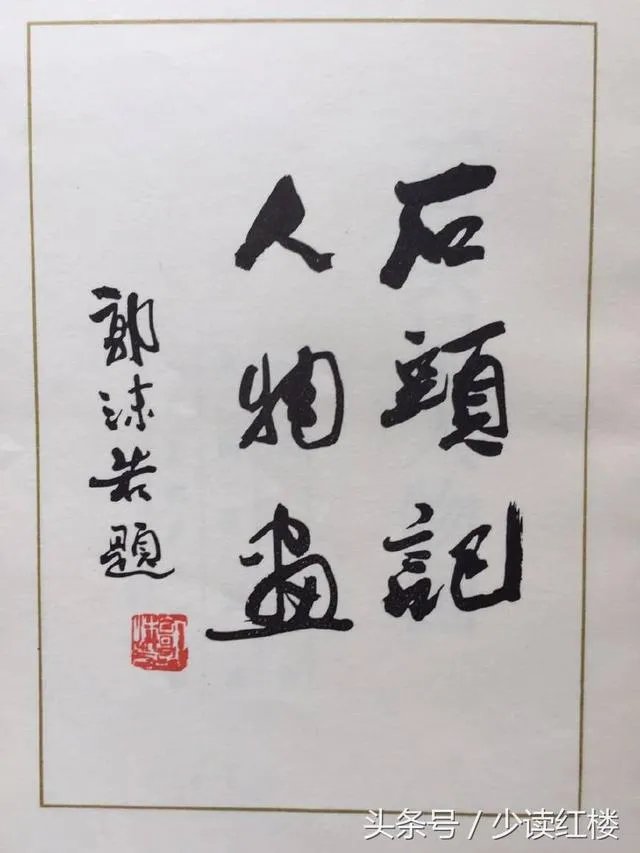 石頭記
人物畫
郭沫若題
头条号 / 少读红楼